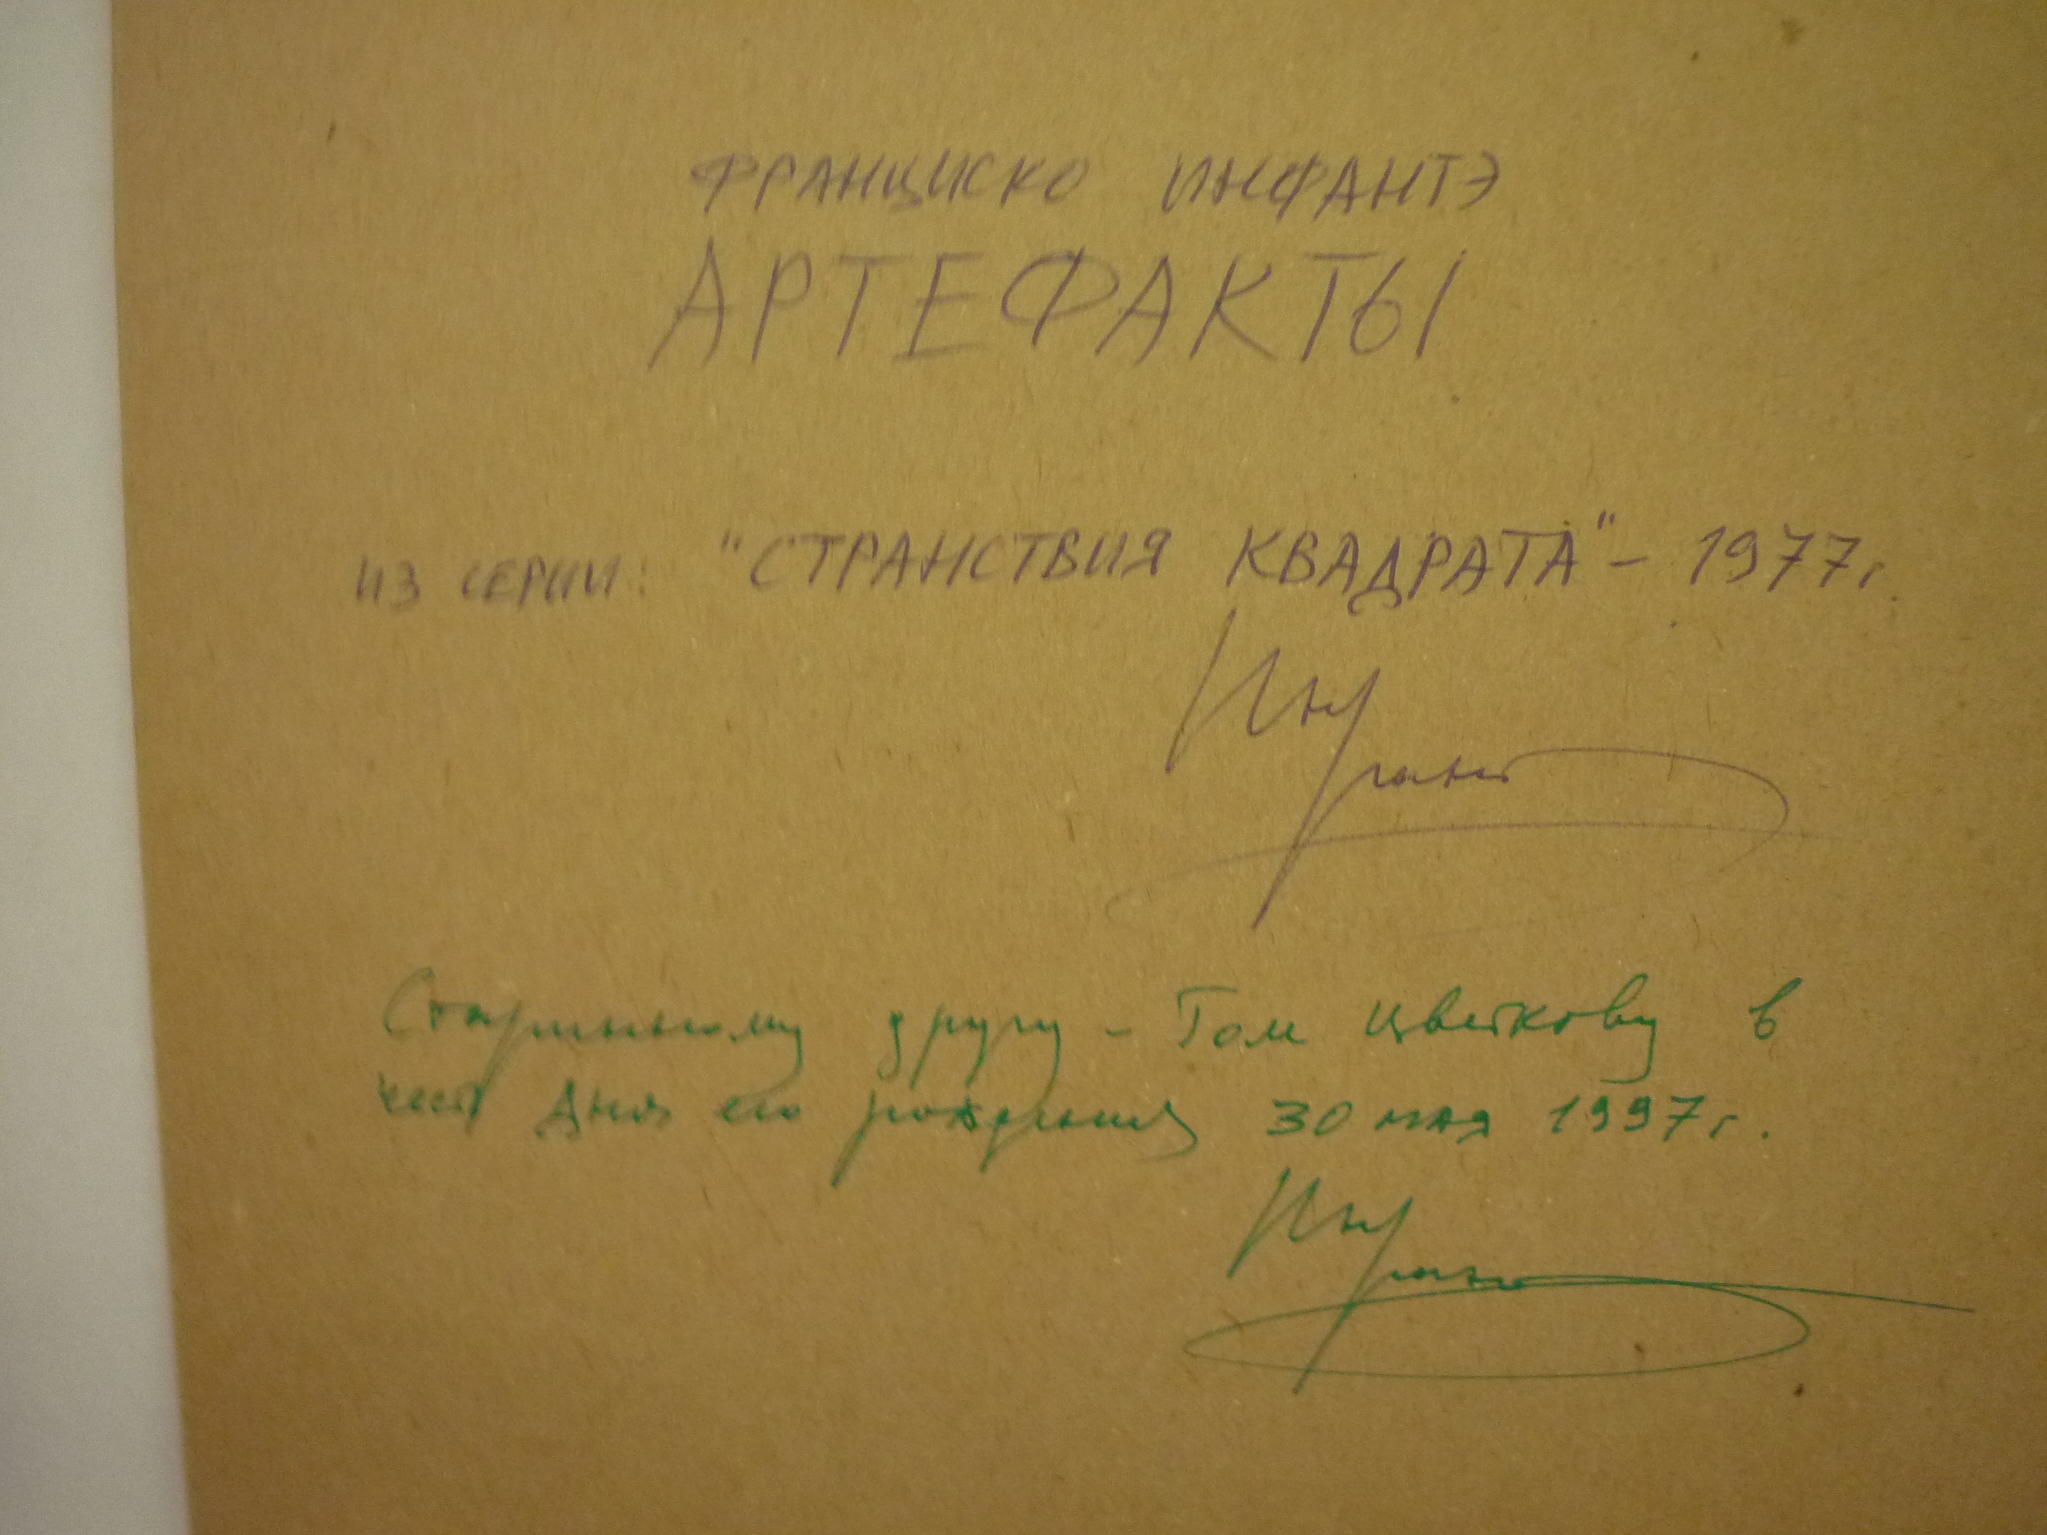 ФРАНЦИСКО ИНФАНТЭ
АРТЕФАКТЫ
ИЗ СЕРИИ: "СТРАНСТВИЯ КВАДРАТА" - 1977г.
Инфантэ
Старинному другу - Толе Цветкову в
честь дня его рождения 30 мая 1997г.
Инфантэ